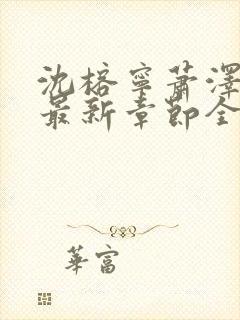 沈榕寧蕭澤
最新章節全
華富